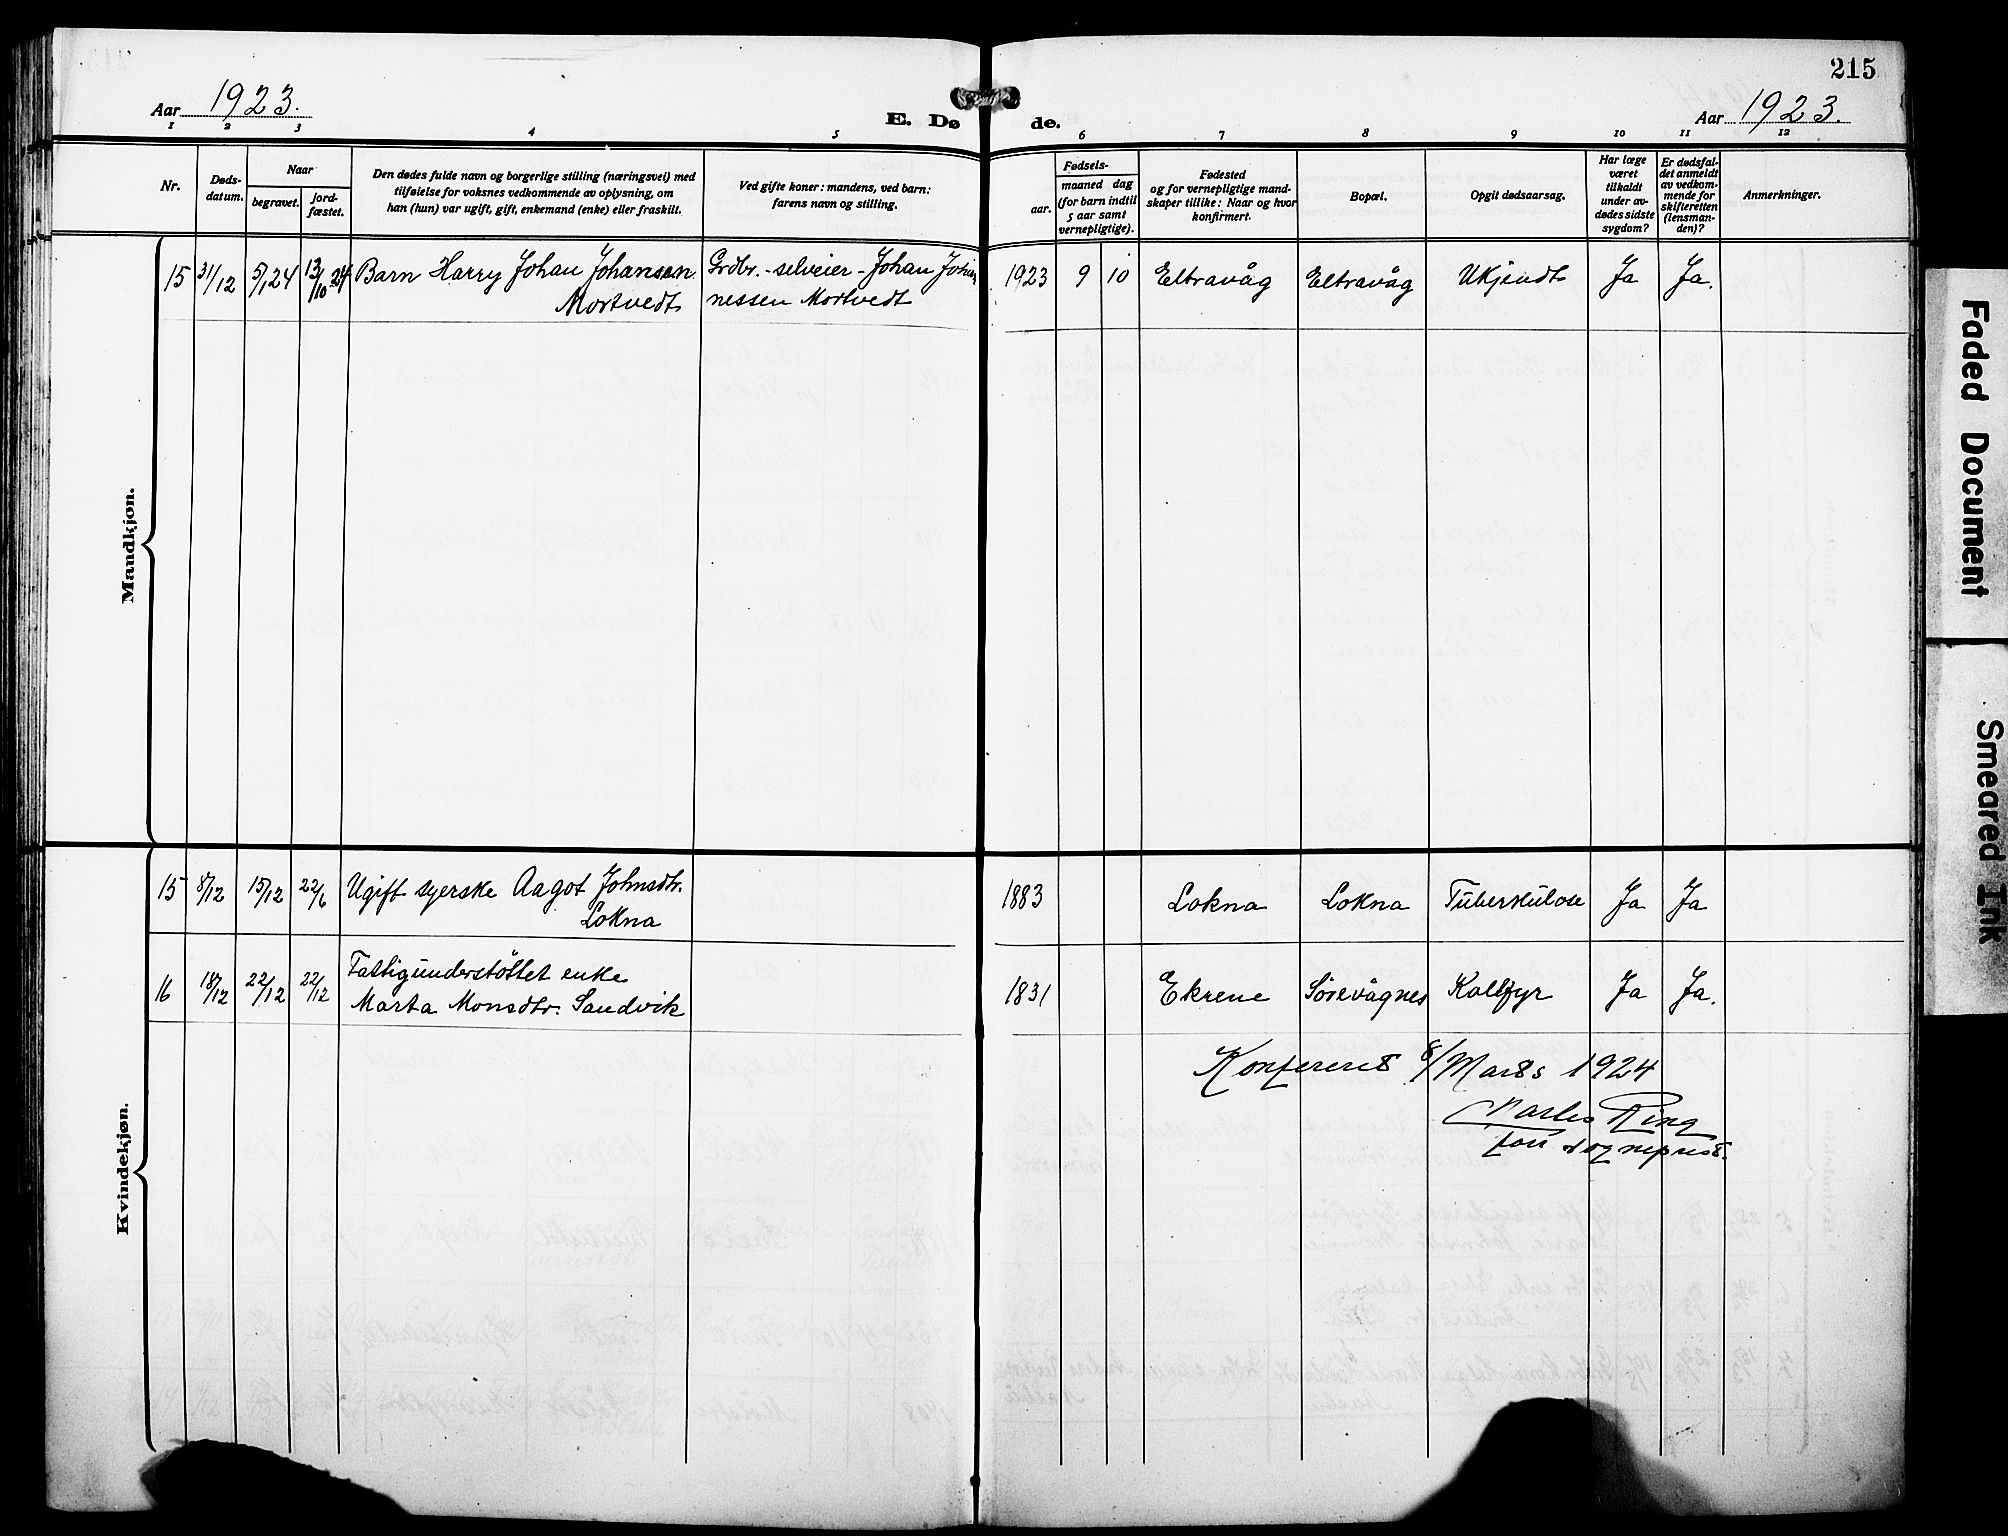 215
Aar 1923.
E. Døde.
Aar 1923.
1 2 3 4 5 6 7 8 9 10 11 12
Nr.
Døds-
datum.
Naar
begravet.
jord-
fæstet.
Den dødes fulde navn og borgerlige stilling (næringsvei) med
tilføielse for voksnes vedkommende av oplysning, om
han (hun) var ugift, gift, enkemand (enke) eller fraskilt.
Ved gifte koner: mandens, ved barn:
farens navn og stilling.
Fødsels-
aar.
maaned dag
(for barn indtil
5 aar samt
vernepligtige).
Fødested
og for vernepligtige mand-
skaper tillike: Naar og hvor
konfirmert.
Bopæl.
Opgit dødsaarsag.
Har læge
været
tilkaldt
under av-
dødes sidste
sygdom?
Er dødsfal-
det anmeldt
av vedkom-
mende for
skifteretten
(lensman-
den)?
Anmerkninger.
Mandkjøn.
15 31/12 5/1 24 13/10 24 Barn Harry Johan Johansen Grdbr. - selveier - Johan Johan-
Mortvedt nessen Mortvedt
1923 9 10 Eltravåg Eltravåg Ukjendt Ja Ja.
Kvindekjøn.
15 8/12 15/12 22/6 Ugift syerske Aagot Johnsdtr.
Lokna
1883 Lokna Lokna Tuberkulose Ja Ja
16 18/12 22/12 22/12 Fattigunderstöttet enke
Marta Monsdtr. Sandvik
1831 Ekrene Sörevågnes Koldfyr Ja Ja.
Konferert 8/Marts 1924
Charles Ring
for sogneprest.
Faded Document
Smeared Ink